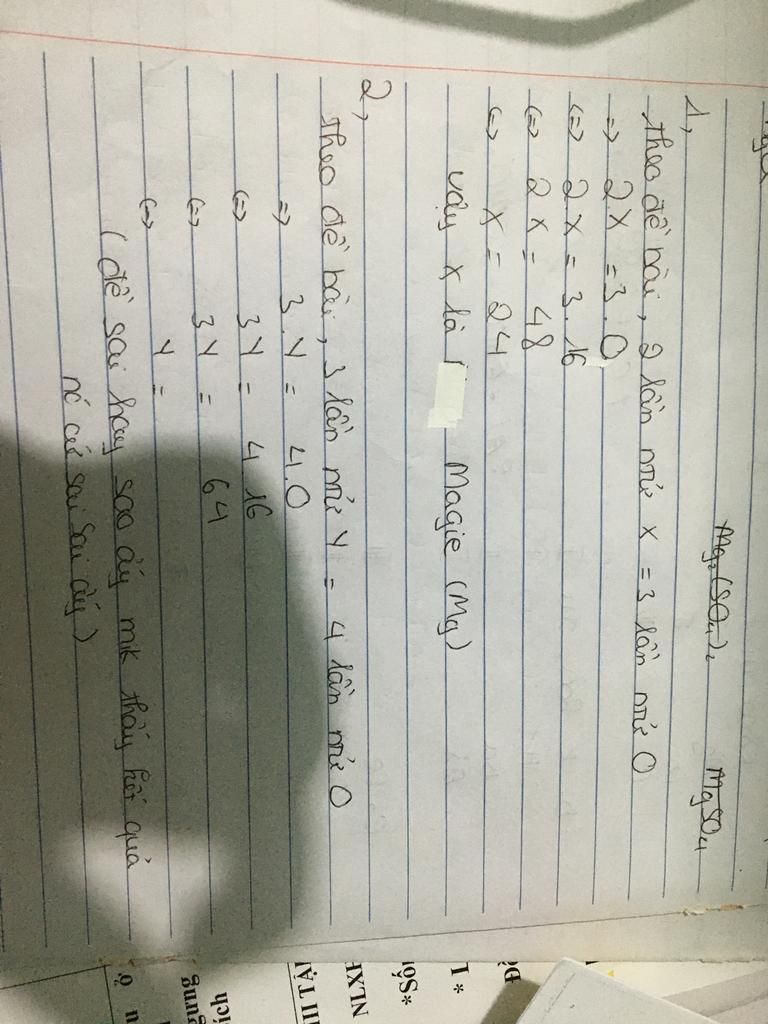 Mg₂(SO₄)₂ MgSO₄
1,
Theo đề bài, 2 lần NTK X = 3 lần NTK O
=> 2X = 3.O
(=) 2X = 3.16
(=) 2X = 48
(=) X = 24
Vậy X là Magie (Mg)
2,
Theo đề bài, 3 lần NTK Y = 4 lần NTK O
=> 3.Y = 4.O
(=) 3Y = 4.16
(=) 3Y = 64
(=) Y =
(đề sai hay sao ấy mik thấy kết quả
nó cứ sai sai ấy)
I *
*Số
NLXH